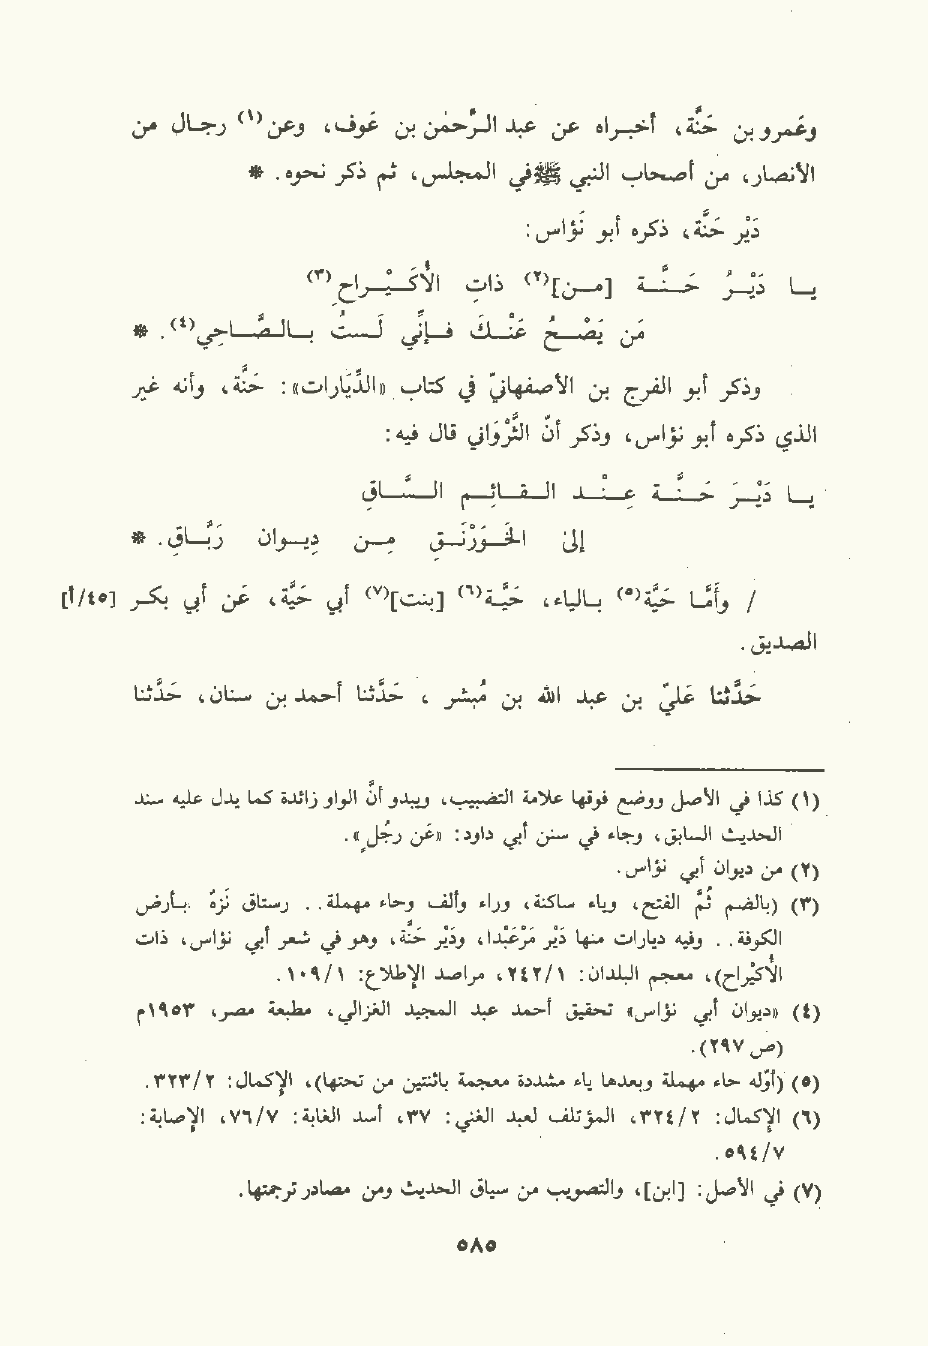 وعَمرو بن حَنَّة، أخبراه عن عبد الرَّحمٰن بن عَوف، وعن(١) رجال من
الأنصار، من أصحاب النبي ﷺ في المجلس، ثم ذكر نحوه. *
دَيْر حَنَّة، ذكره أبو نَؤاس:
يـا دَيْـرُ حَـنَّـة [مـن](٢) ذاتِ الأُكَـيْـراحِ(٣)
مَن يَصْـحُ عَنْـكَ فـإنِّي لَـسـتُ بـالـصَّـاحِي(٤). *
وذكر أبو الفرج بن الأصفهانيّ في كتاب «الدِّيَارات»: حَنَّة، وأنه غير
الذي ذكره أبو نؤاس، وذكر أنّ الثَّرْوَاني قال فيه:
يـا دَيْـرَ حَـنَّـةَ عِـنْـد القـائِـمِ الـسَّـاقِ
إلىٰ الخَـوَرْنَـقِ مِـن دِيـوانِ رَبَّـاقِ. *
/ وأَمَّـا حَيَّة(٥) بـالياء، حَيَّـة(٦) [بنت](٧) أبي حَيَّة، عَن أبي بكـر [٤٥/أ]
الصديق.
حَدَّثنا عَليّ بن عبد الله بن مُبشر، حَدَّثنا أحمد بن سنان، حَدَّثنا
(١) كذا في الأصل ووضع فوقها علامة التضبيب، ويبدو أنّ الواو زائدة كما يدل عليه سند
الحديث السابق، وجاء في سنن أبي داود: «عَن رجُلٍ».
(٢) من ديوان أبي نؤاس.
(٣) (بالضم ثُمّ الفتح، وياء ساكنة، وراء وألف وحاء مهملة.. رستاق نَزِهٌ بأرض
الكوفة.. وفيه ديارات منها دَيْر مَرْعَبْدا، ودَيْر حَنَّة، وهو في شعر أبي نؤاس، ذات
الأُكَيْراح)، معجم البلدان: ٢٤٢/١، مراصد الإطلاع: ١٠٩/١.
(٤) «ديوان أبي نؤاس» تحقيق أحمد عبد المجيد الغزالي، مطبعة مصر، ١٩٥٣م
(ص ٢٩٧).
(٥) (أوّله حاء مهملة وبعدها ياء مشددة معجمة باثنتين من تحتها)، الإكمال: ٣٢٣/٢.
(٦) الإكمال: ٣٢٤/٢، المؤتلف لعبد الغني: ٣٧، أسد الغابة: ٧٦/٧، الإصابة:
٥٩٤/٧.
(٧) في الأصل: [ابن]، والتصويب من سياق الحديث ومن مصادر ترجمتها.
٥٨٥